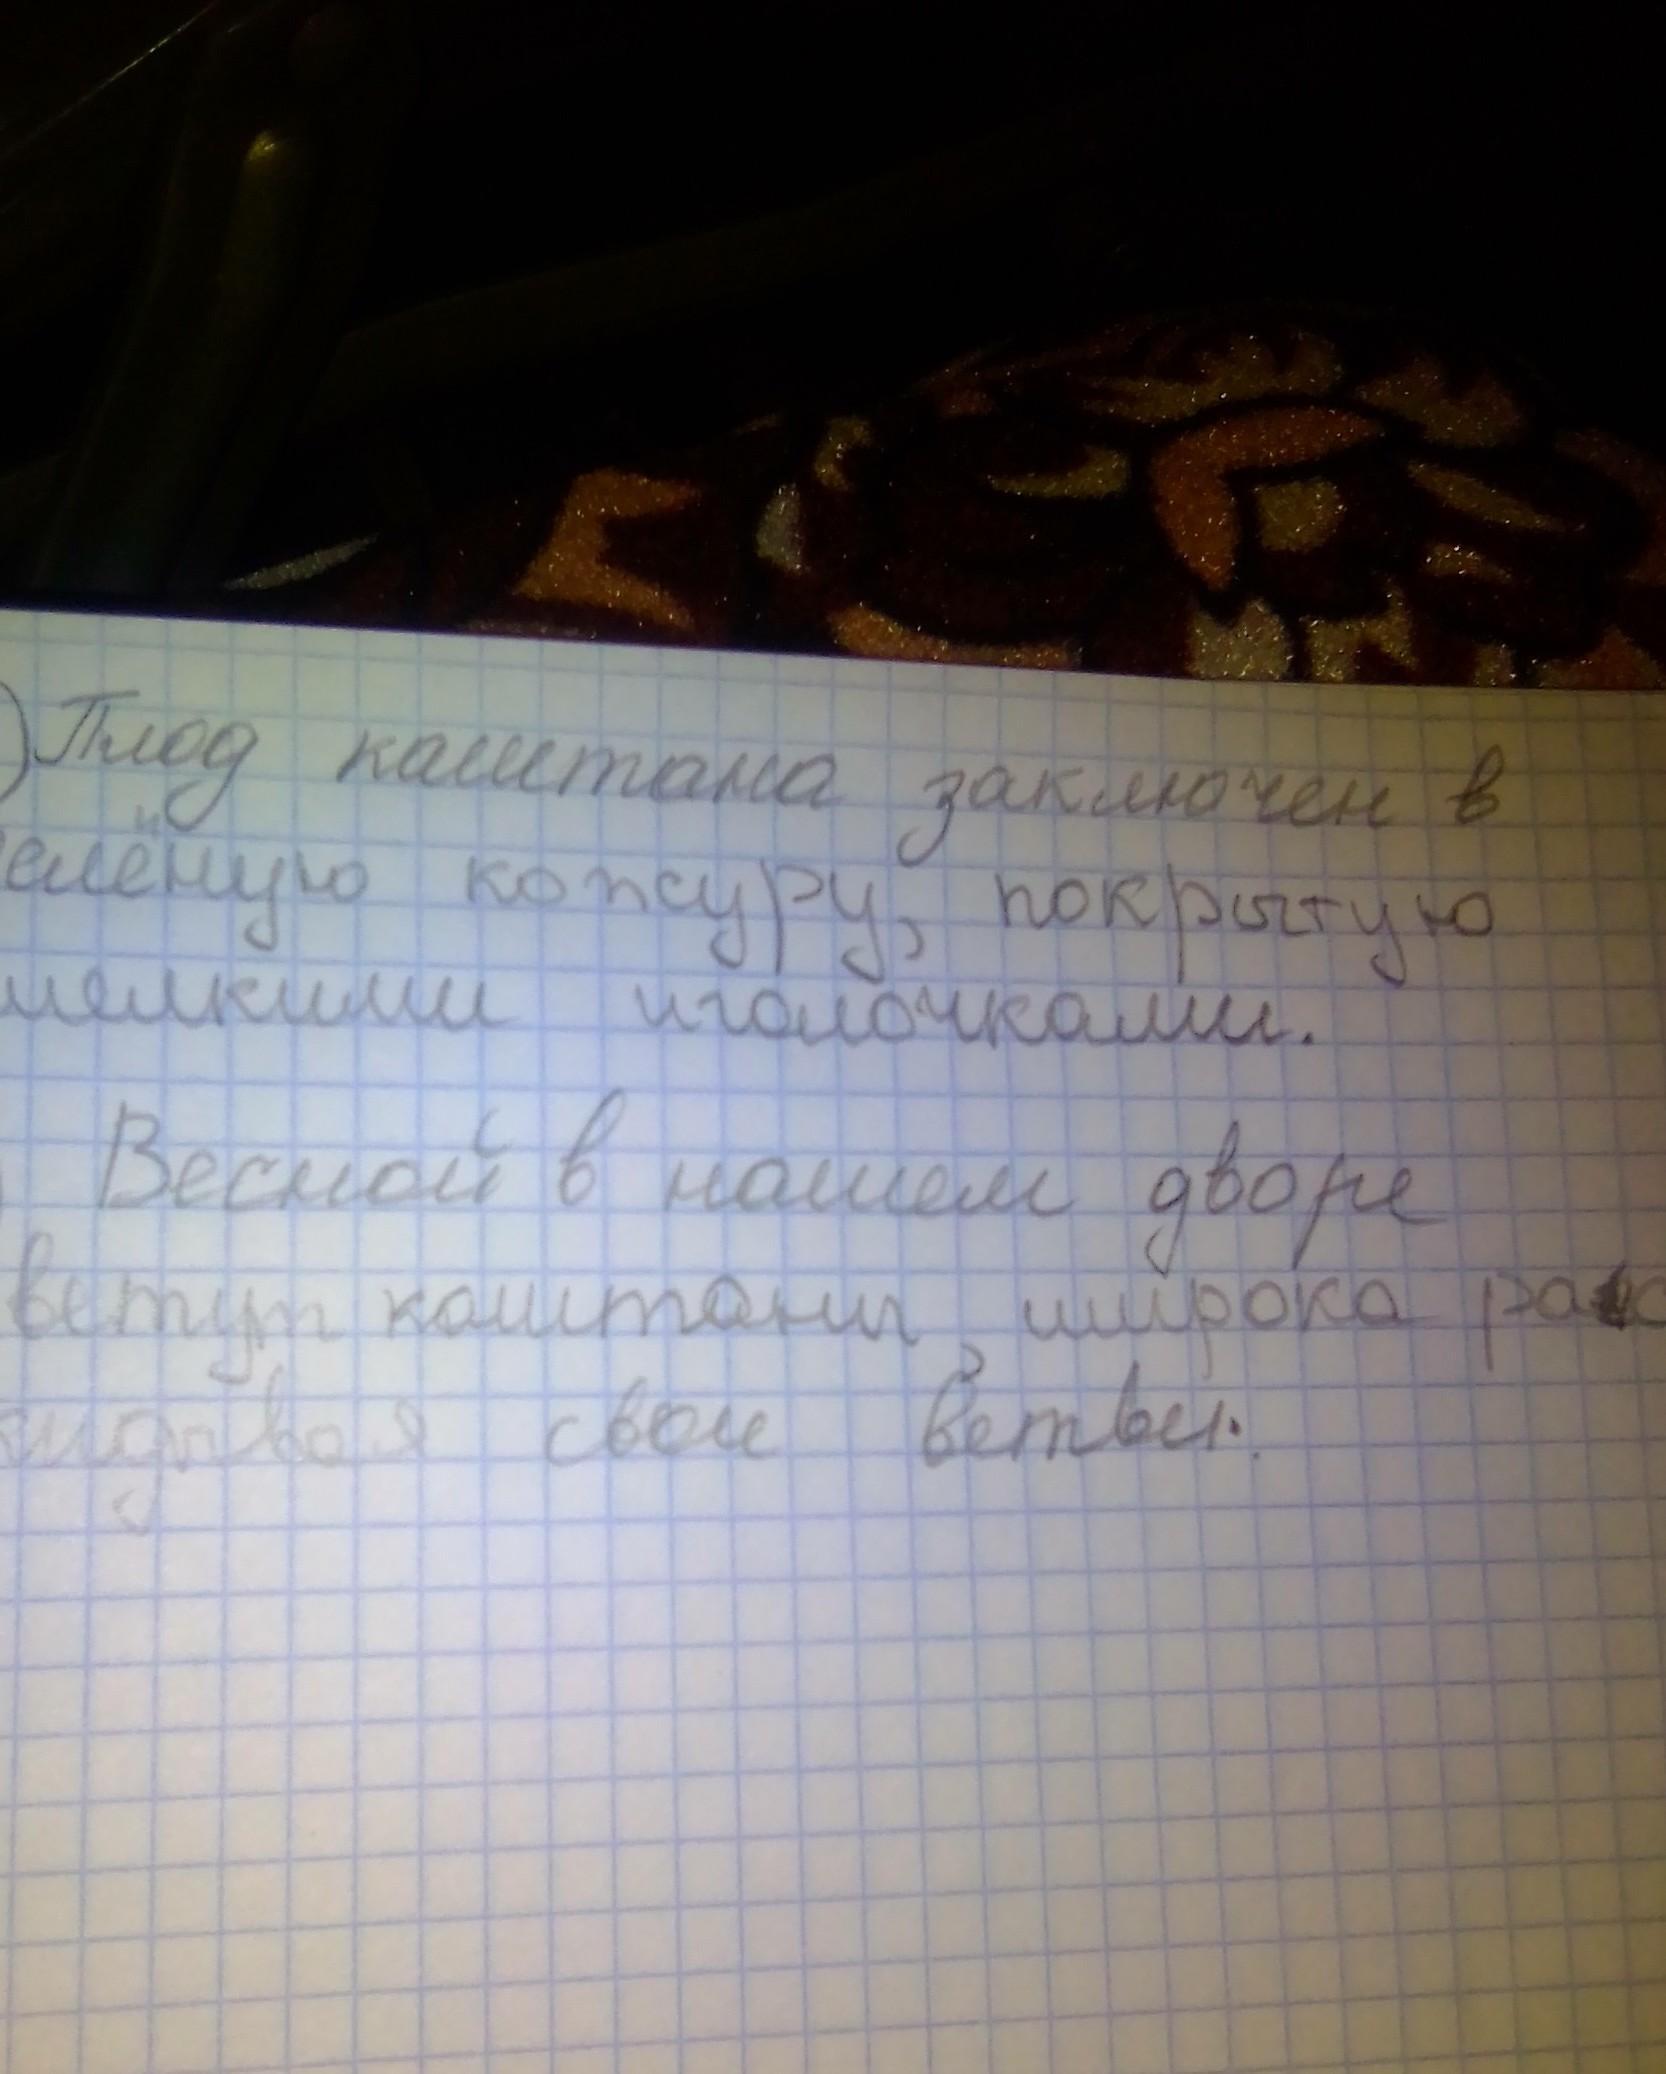 ) Плод каштана заключен в
елёную кожуру, покрытую
мелкими иголочками.
Весной в нашем дворе
ветут каштаны, широка рас
кидовая свои ветви.